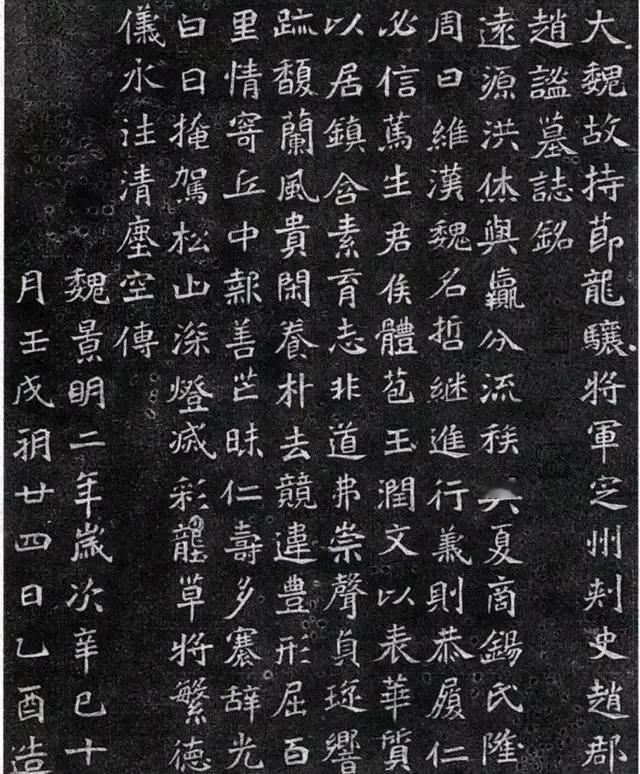 大魏故持節龍驤將軍定州刾史趙郡
趙謐墓誌銘
遠源洪烋與嬴分流秩夏商錫氏隆
周曰維漢魏名哲継進行義則恭履仁
必信篤生君侯體苞玉潤文以表華質
以居鎮含素育志非道弗崇聲貞琁響
跡馥蘭風貴閑養朴去競違豊形屈百
里情寄丘中報善芒昧仁壽多褰辞光
白日掩駕松山深燈滅彩壟草將繁德
儀永往清塵空傳
魏景明二年歲次辛巳十
月壬戌朔廿四日乙酉造